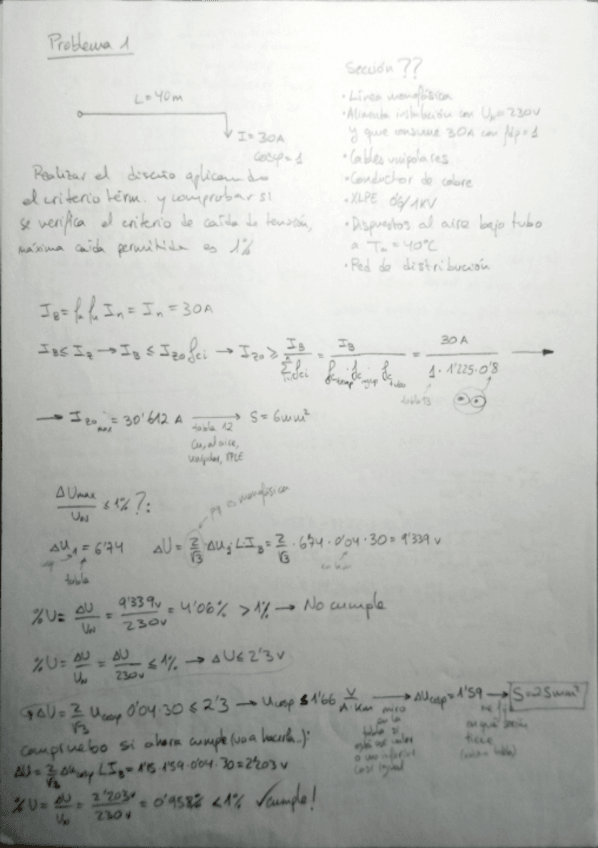 Problema 1
L=40m
I=30A
cosφ=1
Realizar el diseño aplicando
el criterio térm. y comprobar si
se verifica el criterio de caída de tensión,
máxima caída permitida es 1%
Sección ??
• Línea monofásica
• Alimenta instalación con Un=230V
y que consume 30A con fdp=1
• Cables unipolares
• Conductor de cobre
• XLPE 0'6/1KV
• Dispuestos al aire bajo tubo
a Ta=40°C
• Red de distribución
In = In = 30A
IB ≤ IZ → IB ≤ IZ0 fci → IZ0 ≥ IB = IB = 30A / 1·1'225·0'8 →
tabla 13
→ IZ0 = 30'612 A → S=6mm²
tabla 12
Cu, al aire,
unipolar, XLPE
ΔUmax/UN ≤ 1% ?:
pq es monofásica
Δu1 = 6'74 ΔU = 2/√3 Δu1·L·IB = 2/√3 · 6'74 · 0'04 · 30 = 9'339 V
tabla
en km
%U = ΔU/UN = 9'339V/230V = 4'06% > 1% → No cumple
%U = ΔU/UN = ΔU/230V ≤ 1% → ΔU ≤ 2'3V
ΔU = 2/√3 ucosφ 0'04·30 ≤ 2'3 → ucosφ ≤ 1'66 V/A·Km → Δucosφ = 1'59 → S=25mm²
miro
en la
tabla si
está ese valor
o uno inferior
casi igual
qué sección
tiene
(misma tabla)
compruebo si ahora cumple (voa hacerla..):
ΔU = 2/√3 Δucosφ L IB = 1'15·1'59·0'04·30 = 2'203V
%U = ΔU/UN = 2'203V/230V = 0'958% < 1% ✓cumple!